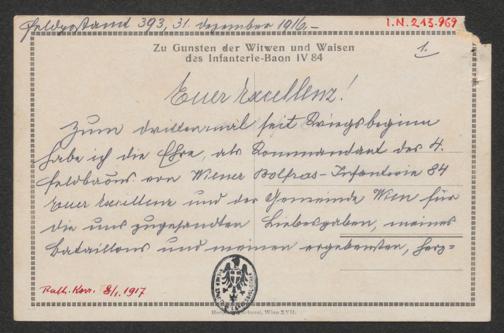 Feldpoststand 393, 31. Dezember 1916.-
I.N. 213.969
1.
Zu Gunsten der Witwen und Waisen
des Infanterie-Baon IV 84
Euer Excellenz!
Zum drittenmal seit Kriegsbeginn
habe ich die Ehre, als Kommandant des 4.
Feldbaons von Wiener Bolfras-Infanterie 84
Euer Excellenz und der Gemeinde Wien für
die uns zugesandten Liebesgaben, meines
Bataillons und meinen ergebensten, herz=
Rath. Korr. 8/1. 1917
Wien XVII.